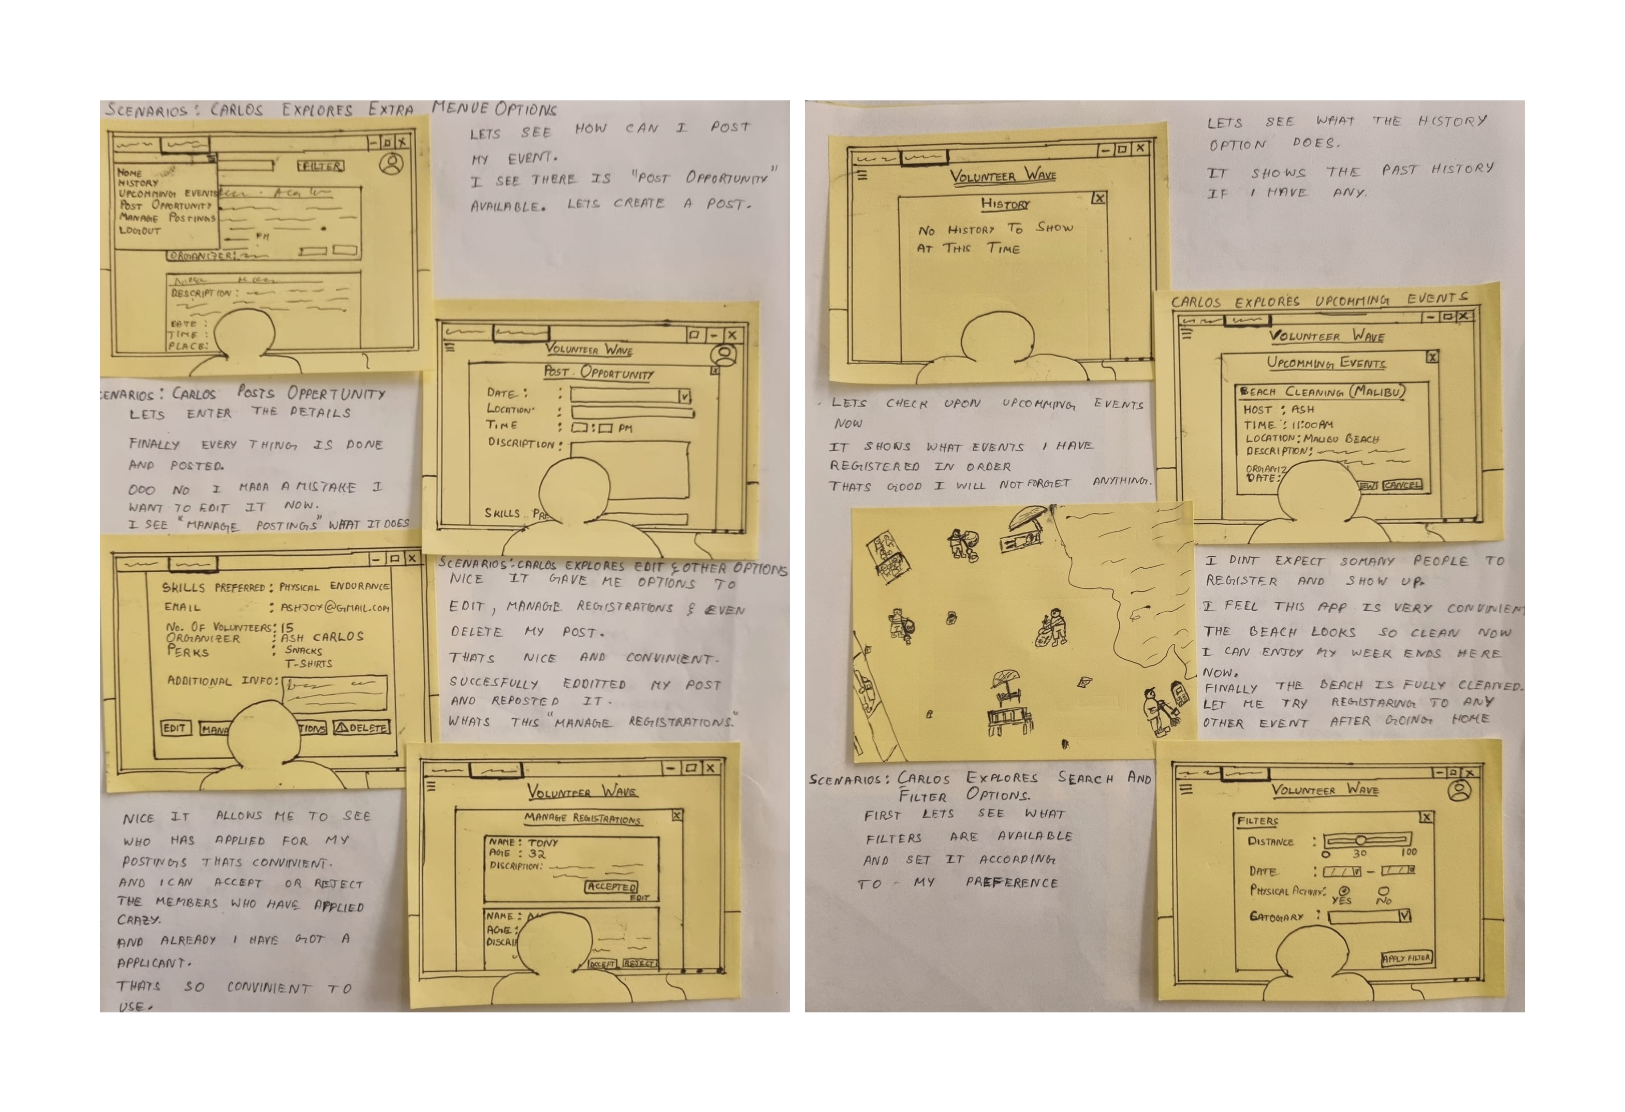 SCENARIOS: CARLOS EXPLORES EXTRA MENUE OPTIONS
FILTER
HOME
HISTORY
UPCOMMING EVENTS
POST OPPORTUNITY
MANAGE POSTINGS
LOGOUT
PM
ORGANIZER:
DESCRIPTION:
DATE:
TIME:
PLACE:
LETS SEE HOW CAN I POST
MY EVENT.
I SEE THERE IS "POST OPPORTUNITY"
AVAILABLE. LETS CREATE A POST.
CENARIOS: CARLOS POSTS OPPERTUNITY
LETS ENTER THE DETAILS
FINALLY EVERY THING IS DONE
AND POSTED.
OOO NO I MADA A MISTAKE I
WANT TO EDIT IT NOW.
I SEE "MANAGE POSTINGS" WHAT IT DOES
VOLUNTEER WAVE
POST OPPORTUNITY
DATE :
LOCATION :
TIME : : PM
DISCRIPTION :
SKILLS PRE
SKILLS PREFERRED : PHYSICAL ENDURANCE
EMAIL : ASHJOY@GMAIL.COM
NO. OF VOLUNTEERS: 15
ORGANIZER : ASH CARLOS
PERKS : SNACKS
T-SHIRTS
ADDITIONAL INFO:
EDIT MANA TIONS DELETE
SCENARIOS: CARLOS EXPLORES EDIT & OTHER OPTIONS
NICE IT GAVE ME OPTIONS TO
EDIT, MANAGE REGISTRATIONS & EVEN
DELETE MY POST.
THATS NICE AND CONVINIENT.
SUCCESFULLY EDDITTED MY POST
AND REPOSTED IT.
WHATS THIS "MANAGE REGISTRATIONS."
NICE IT ALLOWS ME TO SEE
WHO HAS APPLIED FOR MY
POSTINGS THATS CONVINIENT.
AND I CAN ACCEPT OR REJECT
THE MEMBERS WHO HAVE APPLIED
CRAZY.
AND ALREADY I HAVE GOT A
APPLICANT.
THATS SO CONVINIENT TO
USE.
VOLUNTEER WAVE
MANAGE REGISTRATIONS
NAME : TONY
AGE : 32
DISCRIPTION:
ACCEPTED
EDIT
NAME : A
AGE :
DISCRI
ACCEPT REJECT
VOLUNTEER WAVE
HISTORY
NO HISTORY TO SHOW
AT THIS TIME
LETS SEE WHAT THE HISTORY
OPTION DOES.
IT SHOWS THE PAST HISTORY
IF I HAVE ANY.
LETS CHECK UPON UPCOMMING EVENTS
NOW
IT SHOWS WHAT EVENTS I HAVE
REGISTERED IN ORDER
THATS GOOD I WILL NOT FORGET ANYTHING.
CARLOS EXPLORES UPCOMMING EVENTS
VOLUNTEER WAVE
UPCOMMING EVENTS
BEACH CLEANING (MALIBU)
HOST : ASH
TIME : 11:00AM
LOCATION: MALIBU BEACH
DESCRIPTION:
ORGANIZ
DATE:
EW CANCEL
I DINT EXPECT SOMANY PEOPLE TO
REGISTER AND SHOW UP.
I FEEL THIS APP IS VERY CONVINIEN
THE BEACH LOOKS SO CLEAN NOW
I CAN ENJOY MY WEEK ENDS HERE
NOW.
FINALLY THE BEACH IS FULLY CLEANED.
LET ME TRY REGISTARING TO ANY
OTHER EVENT AFTER GOING HOME
SCENARIOS: CARLOS EXPLORES SEARCH AND
FILTER OPTIONS.
FIRST LETS SEE WHAT
FILTERS ARE AVAILABLE
AND SET IT ACCORDING
TO - MY PREFERENCE
VOLUNTEER WAVE
FILTERS
DISTANCE :
0 30 100
DATE : -
PHYSICAL ACTIVITY:
YES NO
CATOGARY :
APPLY FILTER